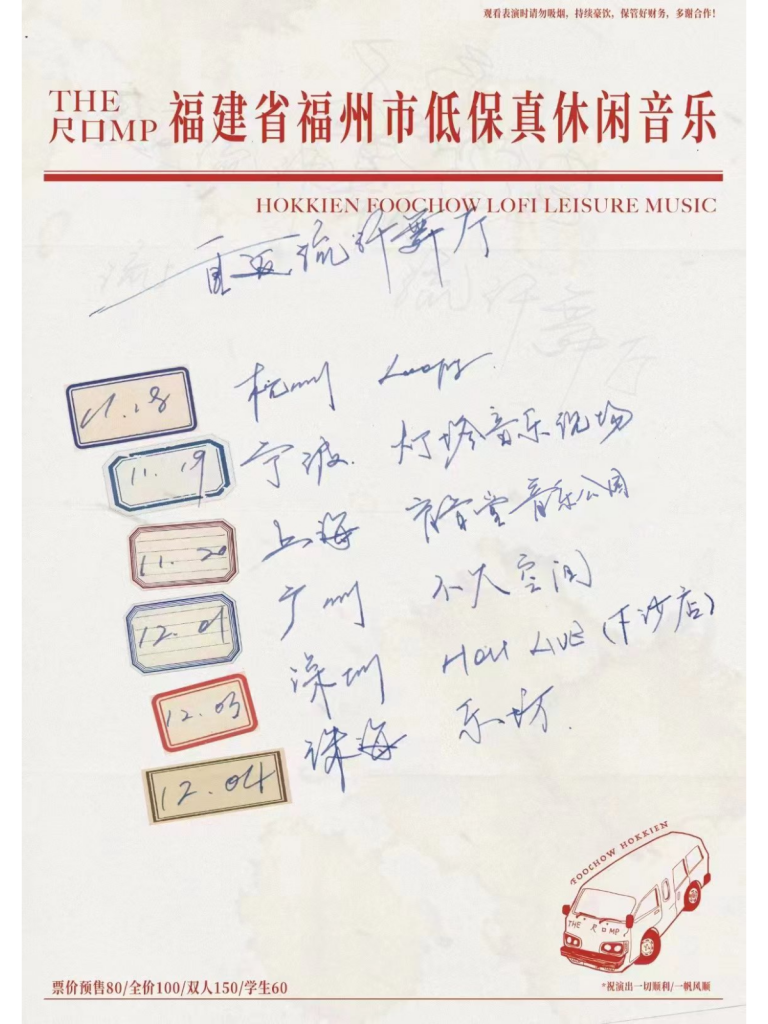 观看表演时请勿吸烟，持续豪饮，保管好财务，多謝合作！
THE
尺口MP 福建省福州市低保真休闲音乐
HOKKIEN FOOCHOW LOFI LEISURE MUSIC
重返流汗舞厅
流汗舞厅
11.18 杭州 Loopy
11.19 宁波 灯塔音乐现场
11.20 上海 育音堂音乐公园
12.01 广州 不大空间
12.03 深圳 HOU LIVE (下沙店)
12.04 珠海 乐坊
FOOCHOW HOKKIEN
THE 尺口MP
票价预售80/全价100/双人150/学生60
*祝演出一切顺利/一帆风顺